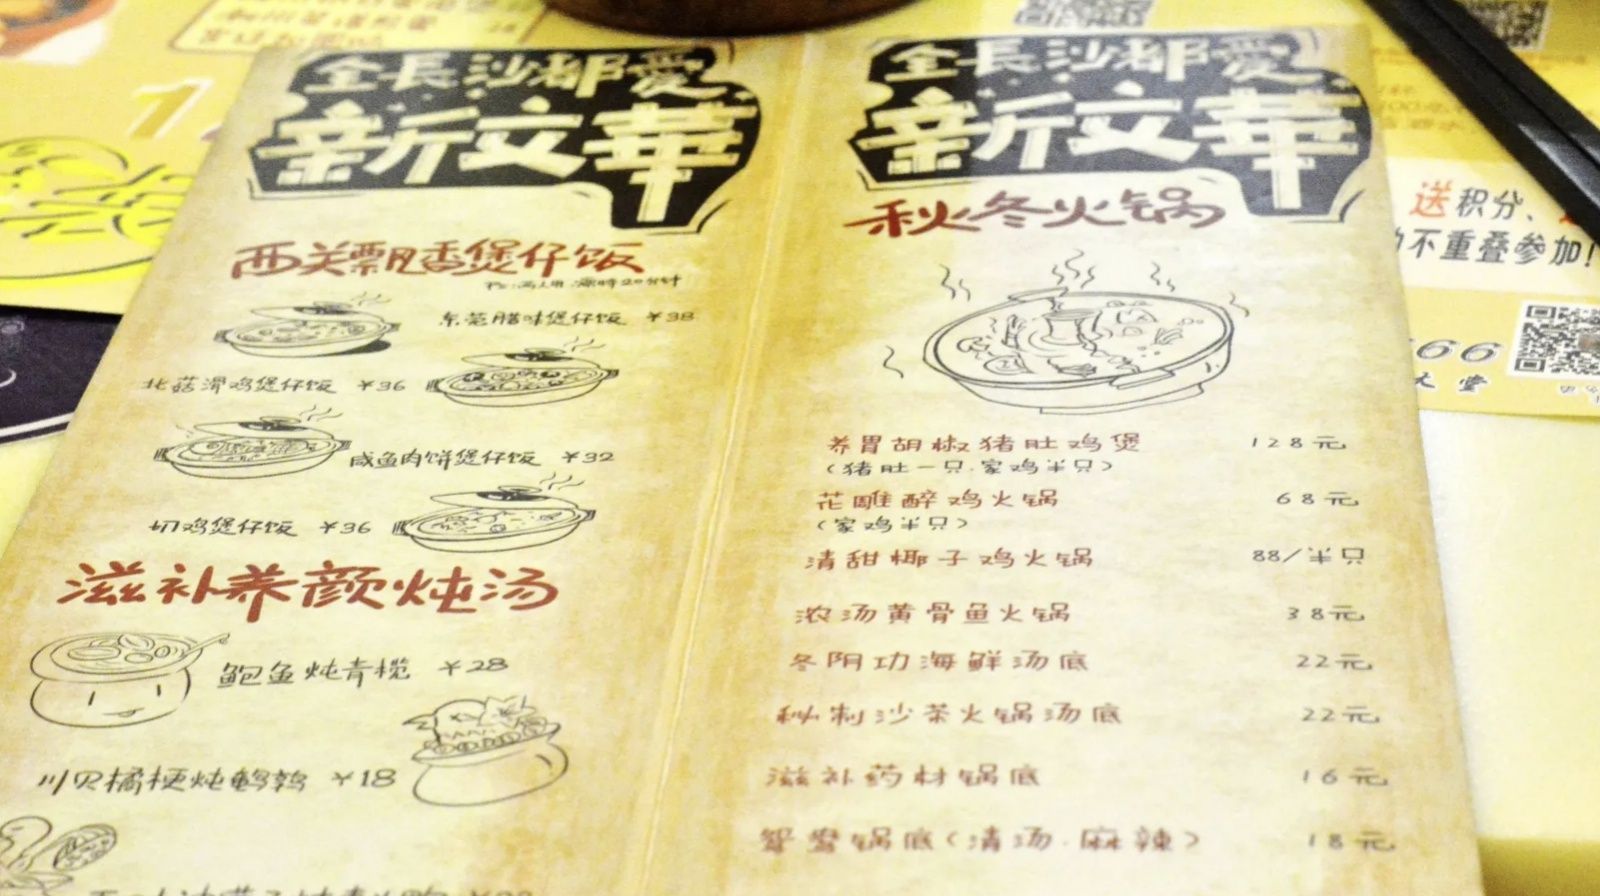 全長沙都愛
新文華
西关飘香煲仔饭
东莞腊味煲仔饭 ￥38
北菇滑鸡煲仔饭 ￥36
咸鱼肉饼煲仔饭 ￥32
切鸡煲仔饭 ￥36
滋补养颜炖汤
鲍鱼炖青榄 ￥28
川贝橘梗炖鹌鹑 ￥18
全長沙都愛
新文華
秋冬火锅
养胃胡椒猪肚鸡煲 128元
(猪肚一只.家鸡半只)
花雕醉鸡火锅 68元
(家鸡半只)
清甜椰子鸡火锅 88/半只
浓汤黄骨鱼火锅 38元
冬阴功海鲜汤底 22元
秘制沙茶火锅汤底 22元
滋补药材锅底 16元
鸳鸯锅底(清汤.麻辣) 18元
送积分、
不重叠参加!
66
大堂